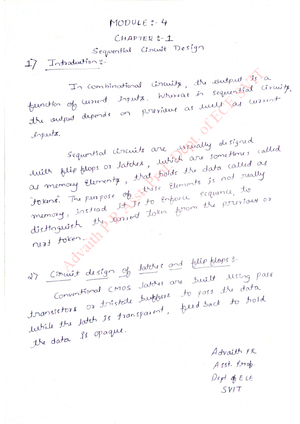 MODULE :- 4
CHAPTER :- 1
Sequential Circuit Design
1) Introduction :-
In combinational circuits, the output is a
function of current inputs. Whereas in sequential circuits,
the output depends on previous as well as current
inputs.
Sequential circuits are usually designed
with flip flops or latches, which are sometimes called
as memory elements, that holds the data called as
tokens. The purpose of these elements is not really
memory, instead it is to enforce sequence, to
distinguish the current token from the previous or
next token.
2) Circuit design of latches and flip flops :-
Conventional CMOS latches are built using pass
transistors or tristate buffers to pass the data
while the latch is transparent, feed back to hold
the data is opaque.
Advaith PR
Asst. Prof
Dept of ECE
SVIT